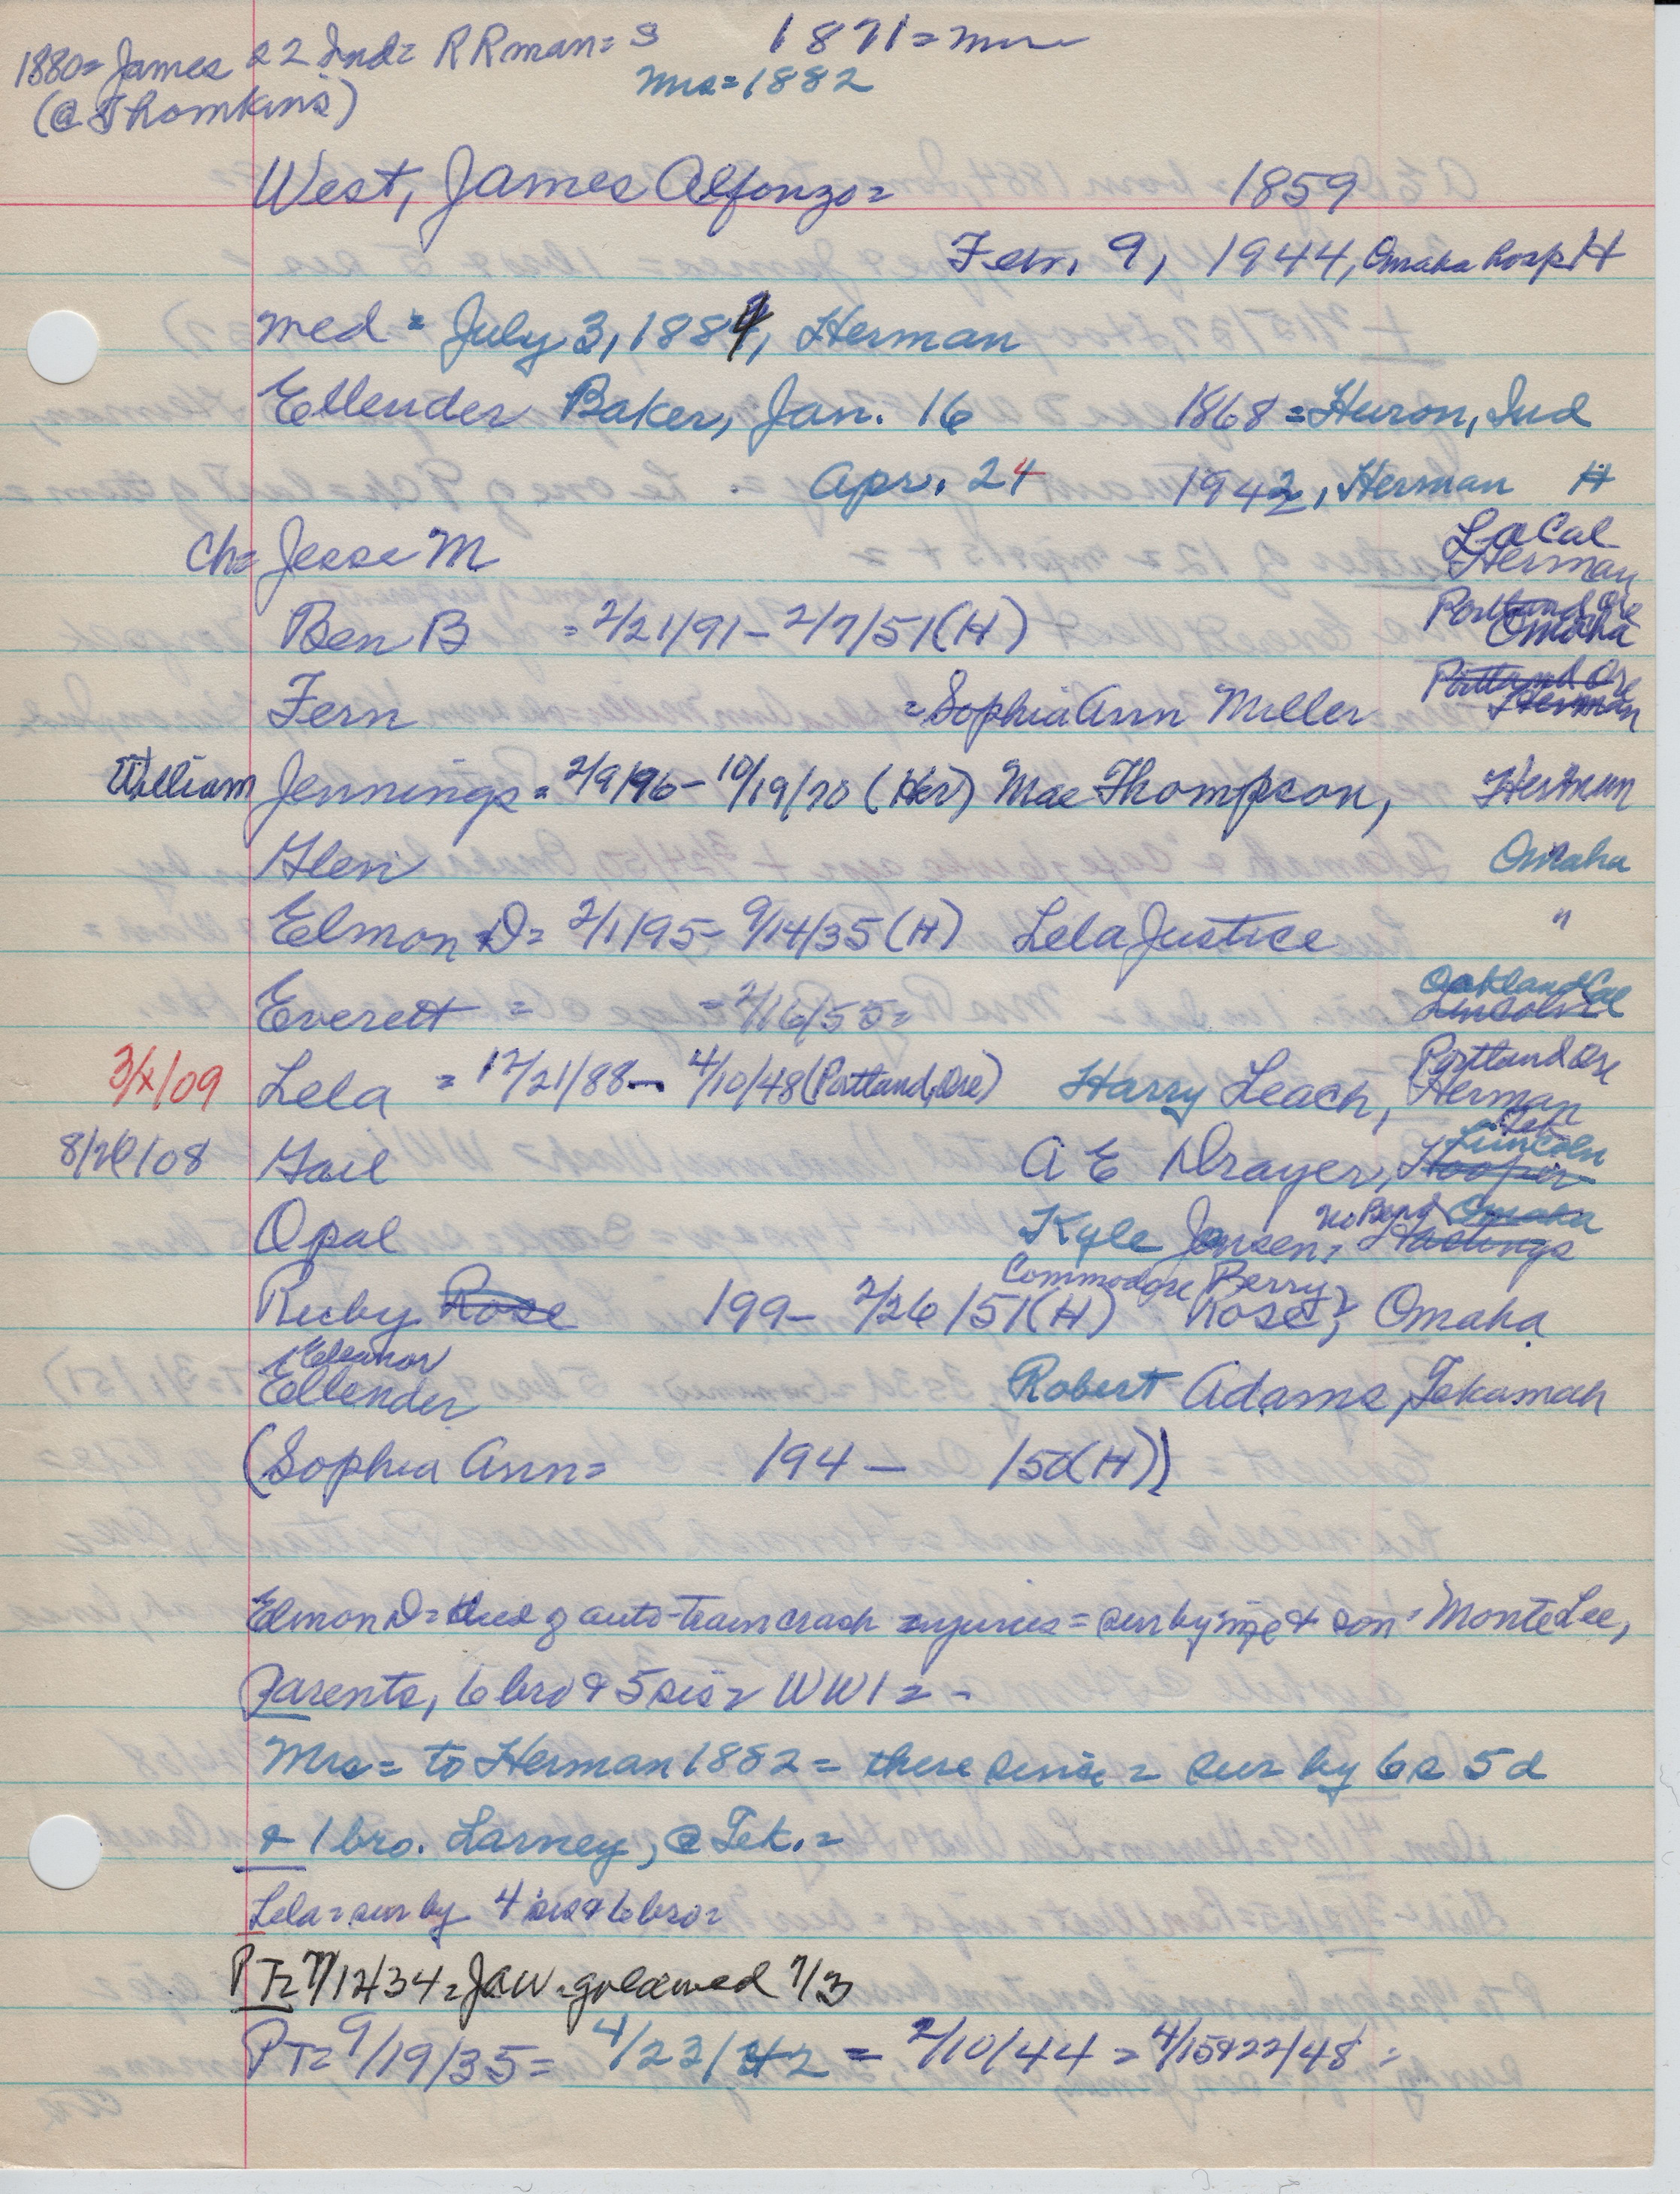 1880= James 22 Ind= RRman= S 1871=
(@ Thomkins) Mrs=1882
West, James Alfonzo= 1859
Feb. 9, 1944, Omaha hosp H
med = July 3, 1884, Herman
Ellender Baker, Jan. 16 1868 = Huron, Ind
Apr. 24 1942, Herman H
Ch= Jesse M LaCal Herman
Ben B = 2/21/91 - 2/7/51 (H) Portland Ore Omaha
Fern = Sophia Ann Miller Portland Ore Herman
William Jennings = 2/9/96 - 10/19/70 (Her) Mae Thompson, Herman
Glen Omaha
Elmon D= 2/1/95 - 9/14/35 (H) Lela Justice "
Everett = = 2/16/55= Oakland Cal Lincoln
3/x/09 Lela = 12/21/88 - 4/10/48 (Portland, Ore) Harry Leach, Portland Ore Herman
8/20/08 Gail A E Drayer, Tek Lincoln Hooper
Opal Kyle Jensen, No Bend Omaha Hastings
Ruby Rose 199- 2/26/51 (H) Commodore Berry Rose, Omaha
Eleanor
Ellender Robert Adams, Tekamah
(Sophia Ann= 194 - /50 (H))
Elmon D= died of auto-train crash injuries = sur by wife & son = Monte Lee,
Parents, 6 bro & 5 sis= WW1= -
Mrs= to Herman 1882 = there since = sur by 6s 5d
& 1 bro. Larney, @ Tek.=
Lela= sur by 4 sis & 6 bro=
PT= 7/12/34= JAW= golden wed 7/3
PT= 9/19/35= 4/23/42 = 2/10/44 = 4/15&22/48 =